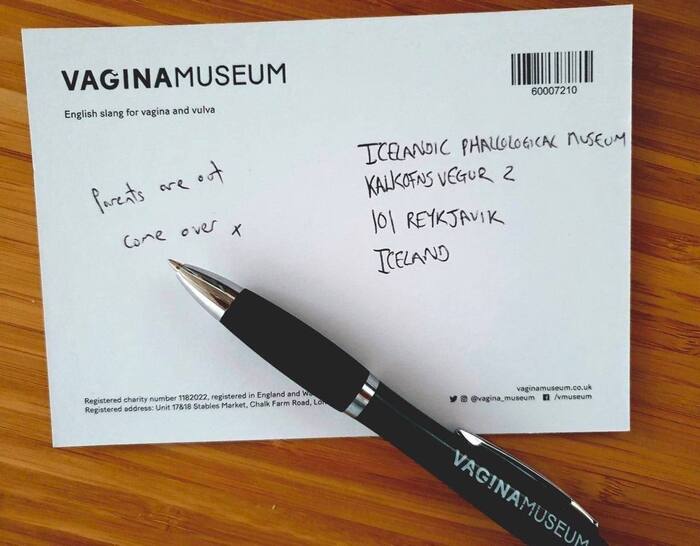 VAGINAMUSEUM
English slang for vagina and vulva
60007210
Parents are out
come over x
ICELANDIC PHALLOLOGICAL MUSEUM
KALKOFNSVEGUR 2
101 REYKJAVIK
ICELAND
Registered charity number 1182022, registered in England and
Registered address: Unit 17&18 Stables Market, Chalk Farm Road,
vaginamuseum.co.uk
@vagina_museum /vmuseum
VAGINAMUSEUM